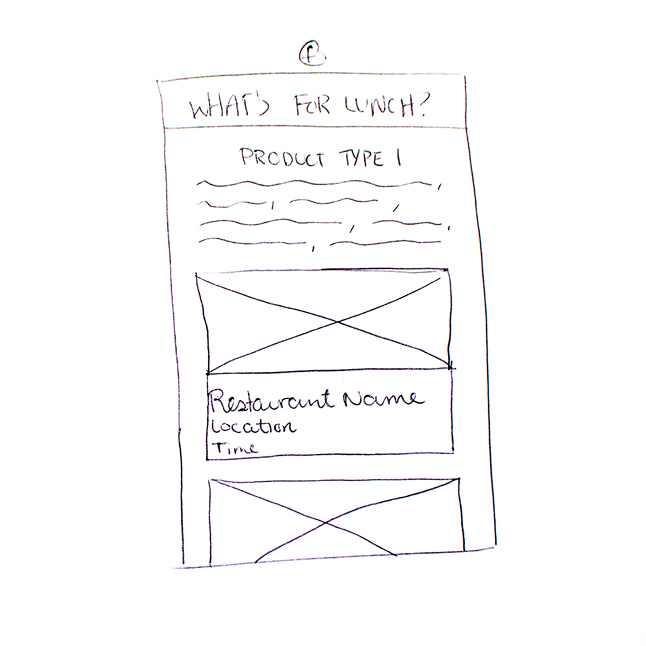 f
WHAT'S FOR LUNCH?
PRODUCT TYPE 1
Restaurant Name
Location
Time